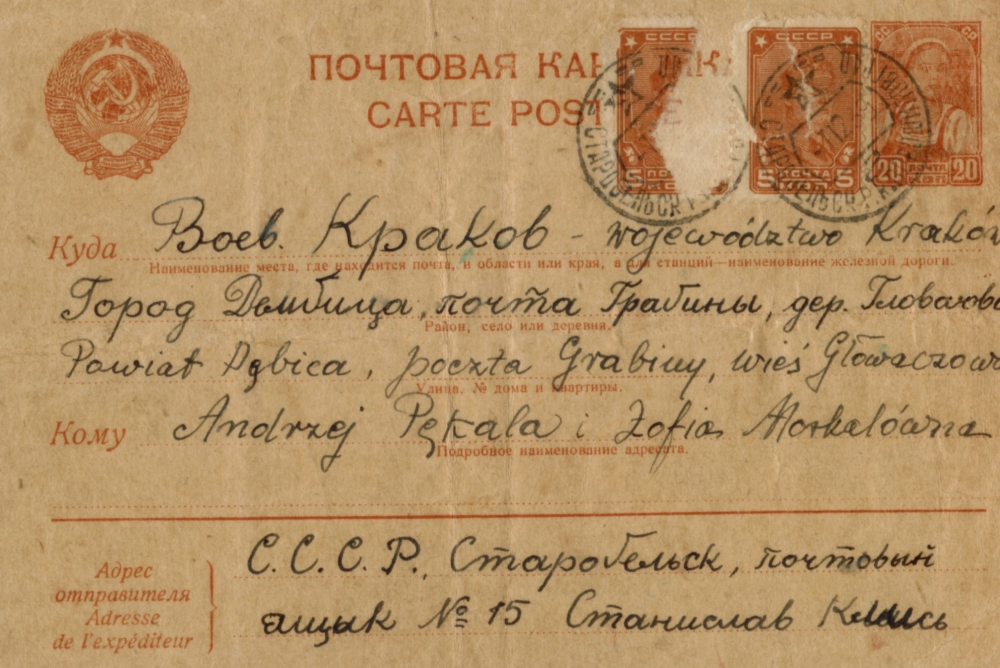 СССР
СССР
СС СР
ПОЧТОВАЯ
CARTE
5 ПОЧТА 5
5 ПОЧТА 5
20 ПОЧТА 20
СТАРОБЕЛЬСК
Куда Воев. Краков – województwo Kraków
Наименование места, где находится почта, и области или края, а для станций—наименование железной дороги.
Город Дембица, почта Грабины, дер.
Район, село или деревня.
Powiat Dębica, poczta Grabiny, wieś
Улица, № дома и квартиры.
Кому Andrzej Pękala i Zofia
Подробное наименование адресата.
Адрес
отправителя
Adresse
de l'expéditeur
С.С.С.Р., Старобельск, почтовый
ящык № 15 Станислав